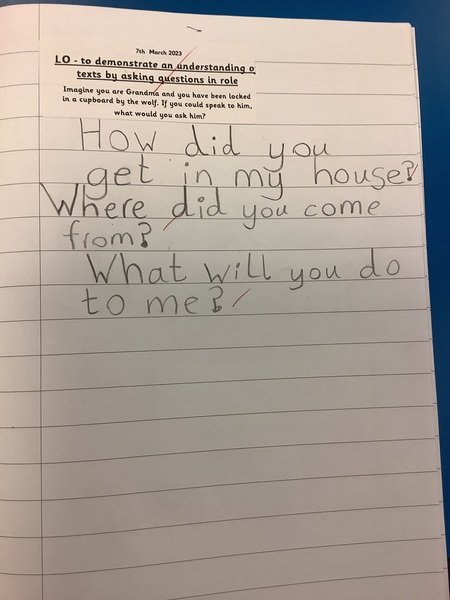 7th March 2023
LO - to demonstrate an understanding o
texts by asking questions in role
Imagine you are Grandma and you have been locked
in a cupboard by the wolf. If you could speak to him,
what would you ask him?
How did you
get in my house?
Where did you come
from?
What will you do
to me?